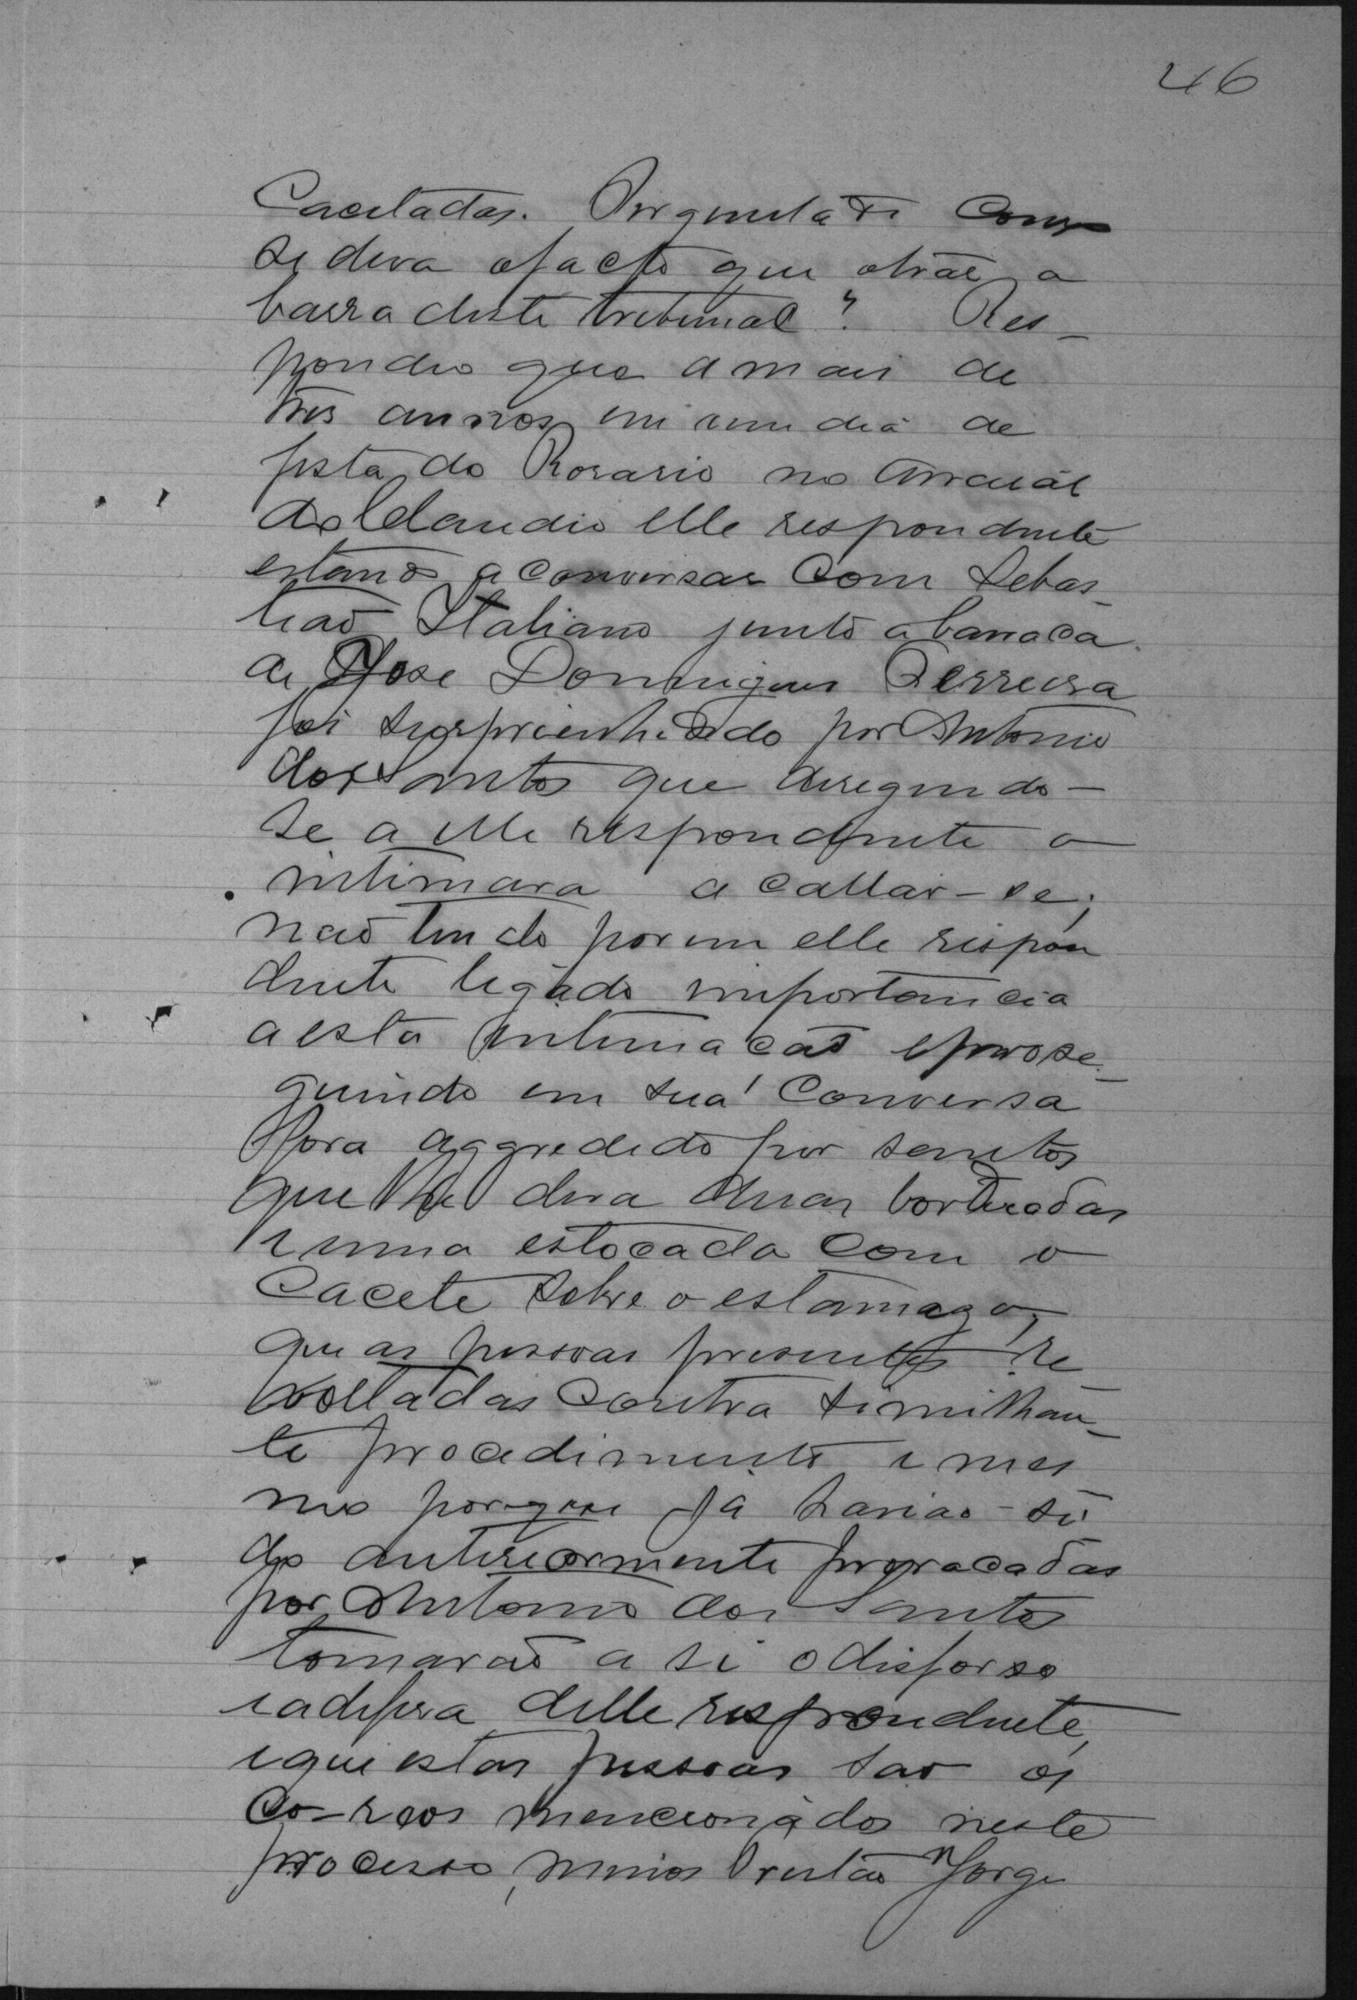 46
Cacetadas. Perguntado Como
se dera o facto que o trás a
barra deste tribunal? Res-
pondeo que a mais de
tres annos em um dia de
festa do Rosario no Arraial
do Claudio elle respondente
estando a conversar com Sebas-
tiaõ Italiano junto a barraca
de Jose Domingues Ferreira
foi surprienhidido por Antonio
dos Santos que deregindo-
se a elle respondente o
intimara a callar-se;
naõ tendo porem elle respon
dente ligado importancia
a esta intimacaõ e prose-
guindo em sua conversa
fora aggredido por santos
que lhe dera duas borduadas
e uma estocada com o
Cacete sobre o estamago,
que as pessoas presentes re-
voltadas contra similhan-
te procedimento e mes
mo porque já haviaõ si
do anteriormente provacadas
por Antonio dos Santos
tomaraõ a si o disforso
e a defesa delle respondente,
e que estas pessoas saõ os
co-reos mencionados neste
processo, menos Jorge